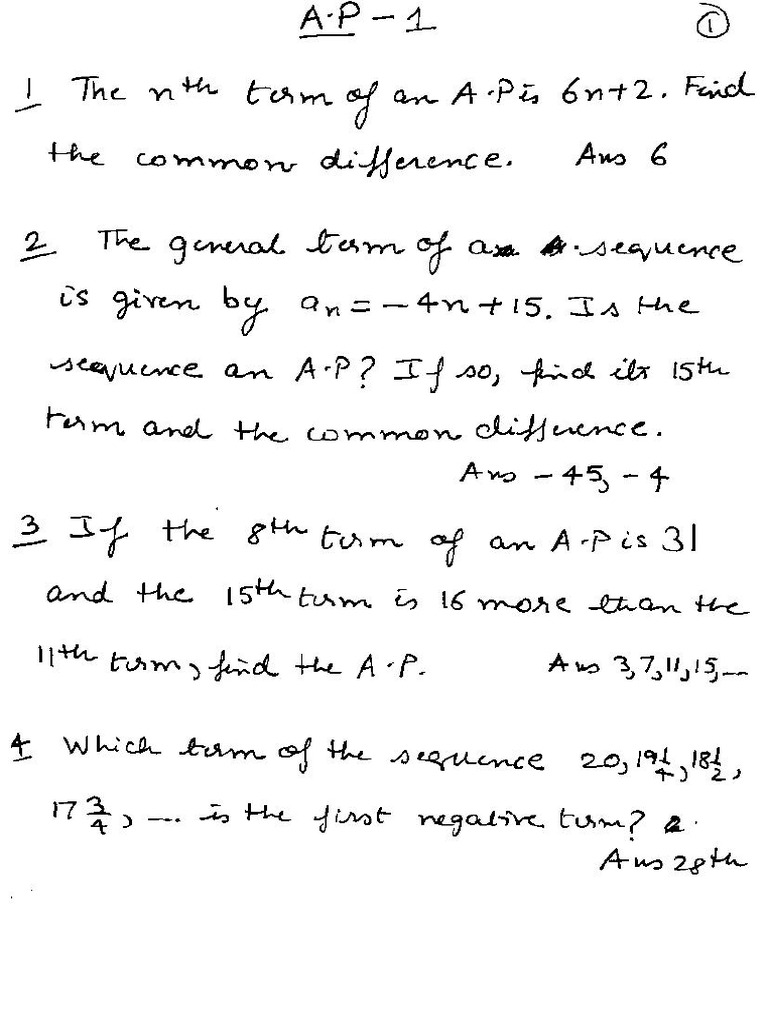 A.P - 1 ①
1 The nth term of an A.P is 6n+2. Find
the common difference. Ans 6
2 The general term of a sequence
is given by aₙ = -4n + 15. Is the
sequence an A.P? If so, find its 15th
term and the common difference.
Ans -45, -4
3 If the 8th term of an A.P is 31
and the 15th term is 16 more than the
11th term, find the A.P. Ans 3,7,11,15,...
4 Which term of the sequence 20, 19 1/4, 18 1/2,
17 3/4, ... is the first negative term?
Ans 28th